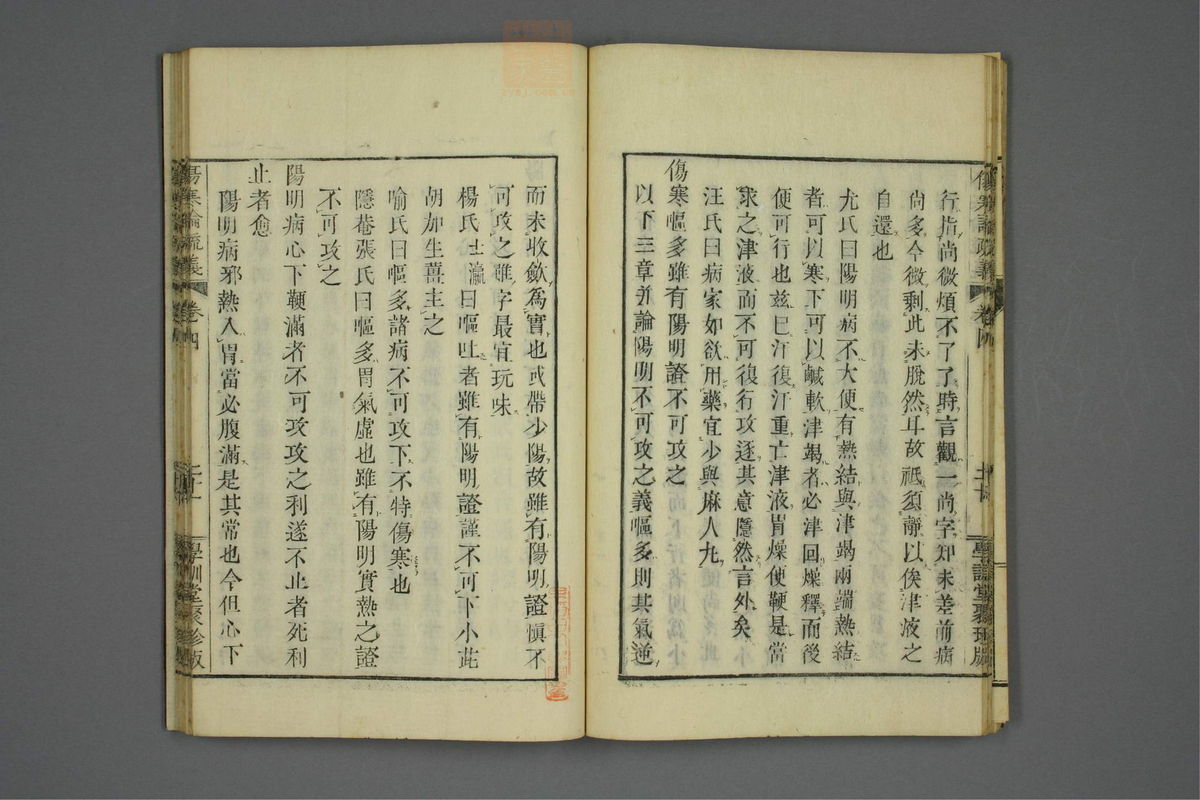 傷寒論疏義 卷四 學訓堂聚珍版
行指尚微煩不了了時言觀一尚字知未差前病
尚多今微剩此未脫然耳故祗須靜以俟津液之
自還也
尤氏曰陽明病不大便有熱結與津竭兩端熱結
者可以寒下可以鹹軟津竭者必津回燥釋而後
便可行也茲已汗復汗重亡津液胃燥便鞕是當
求之津液而不可復行攻逐其意隱然言外矣
汪氏曰病家如欲用藥宜少與麻人丸
傷寒嘔多雖有陽明證不可攻之
以下三章併論陽明不可攻之義嘔多則其氣逆
而未收斂爲實也或帶少陽故雖有陽明證愼不
可攻之雖字最宜玩味
楊氏士瀛曰嘔吐者雖有陽明證謹不可下小茈
胡加生薑主之
喻氏曰嘔多諸病不可攻下不特傷寒也
隱菴張氏曰嘔多胃氣虛也雖有陽明實熱之證
不可攻之
陽明病心下鞕滿者不可攻攻之利遂不止者死利
止者愈
陽明病邪熱入胃當必腹滿是其常也今但心下
傷寒論疏義 卷四 學訓堂聚珍版